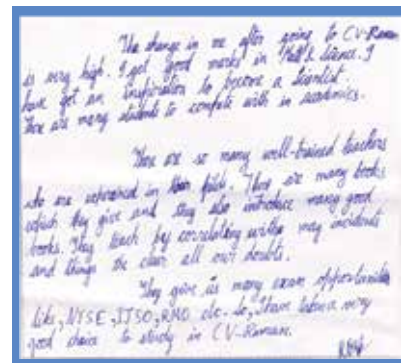 The change in me after going to CV-Raman
is very high. I got good marks in Mat & Science. I
have got an inspiration to become a Scientist.
There are many students to compete with in academics.
There are so many well-trained teachers
who are in fields. There are many books
which they give and they also introduce many good
books. They teach by correlating with may incidents
and things to clear all our doubts.
They give us many exam opportunities
like, NTSE, ITSO, RMO etc. So, I have taken a very
good choice to study in CV-Raman.